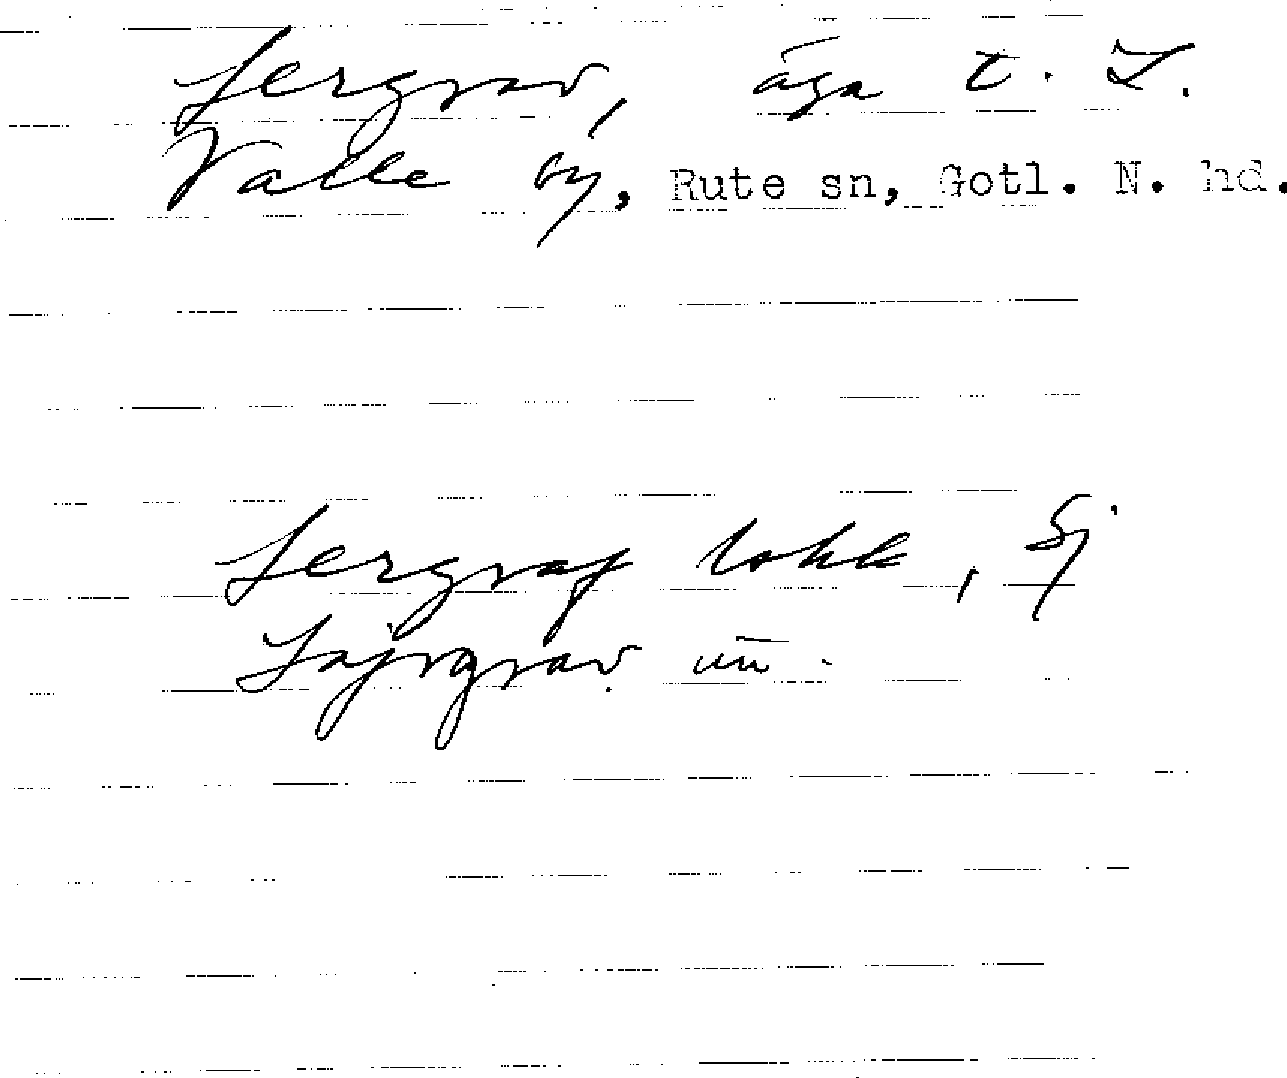 Lergrav, äga t. L.
Valle by, Rute sn, Gotl. N. hd.
Lergraf lokk, Ej
Lajrgrav um.